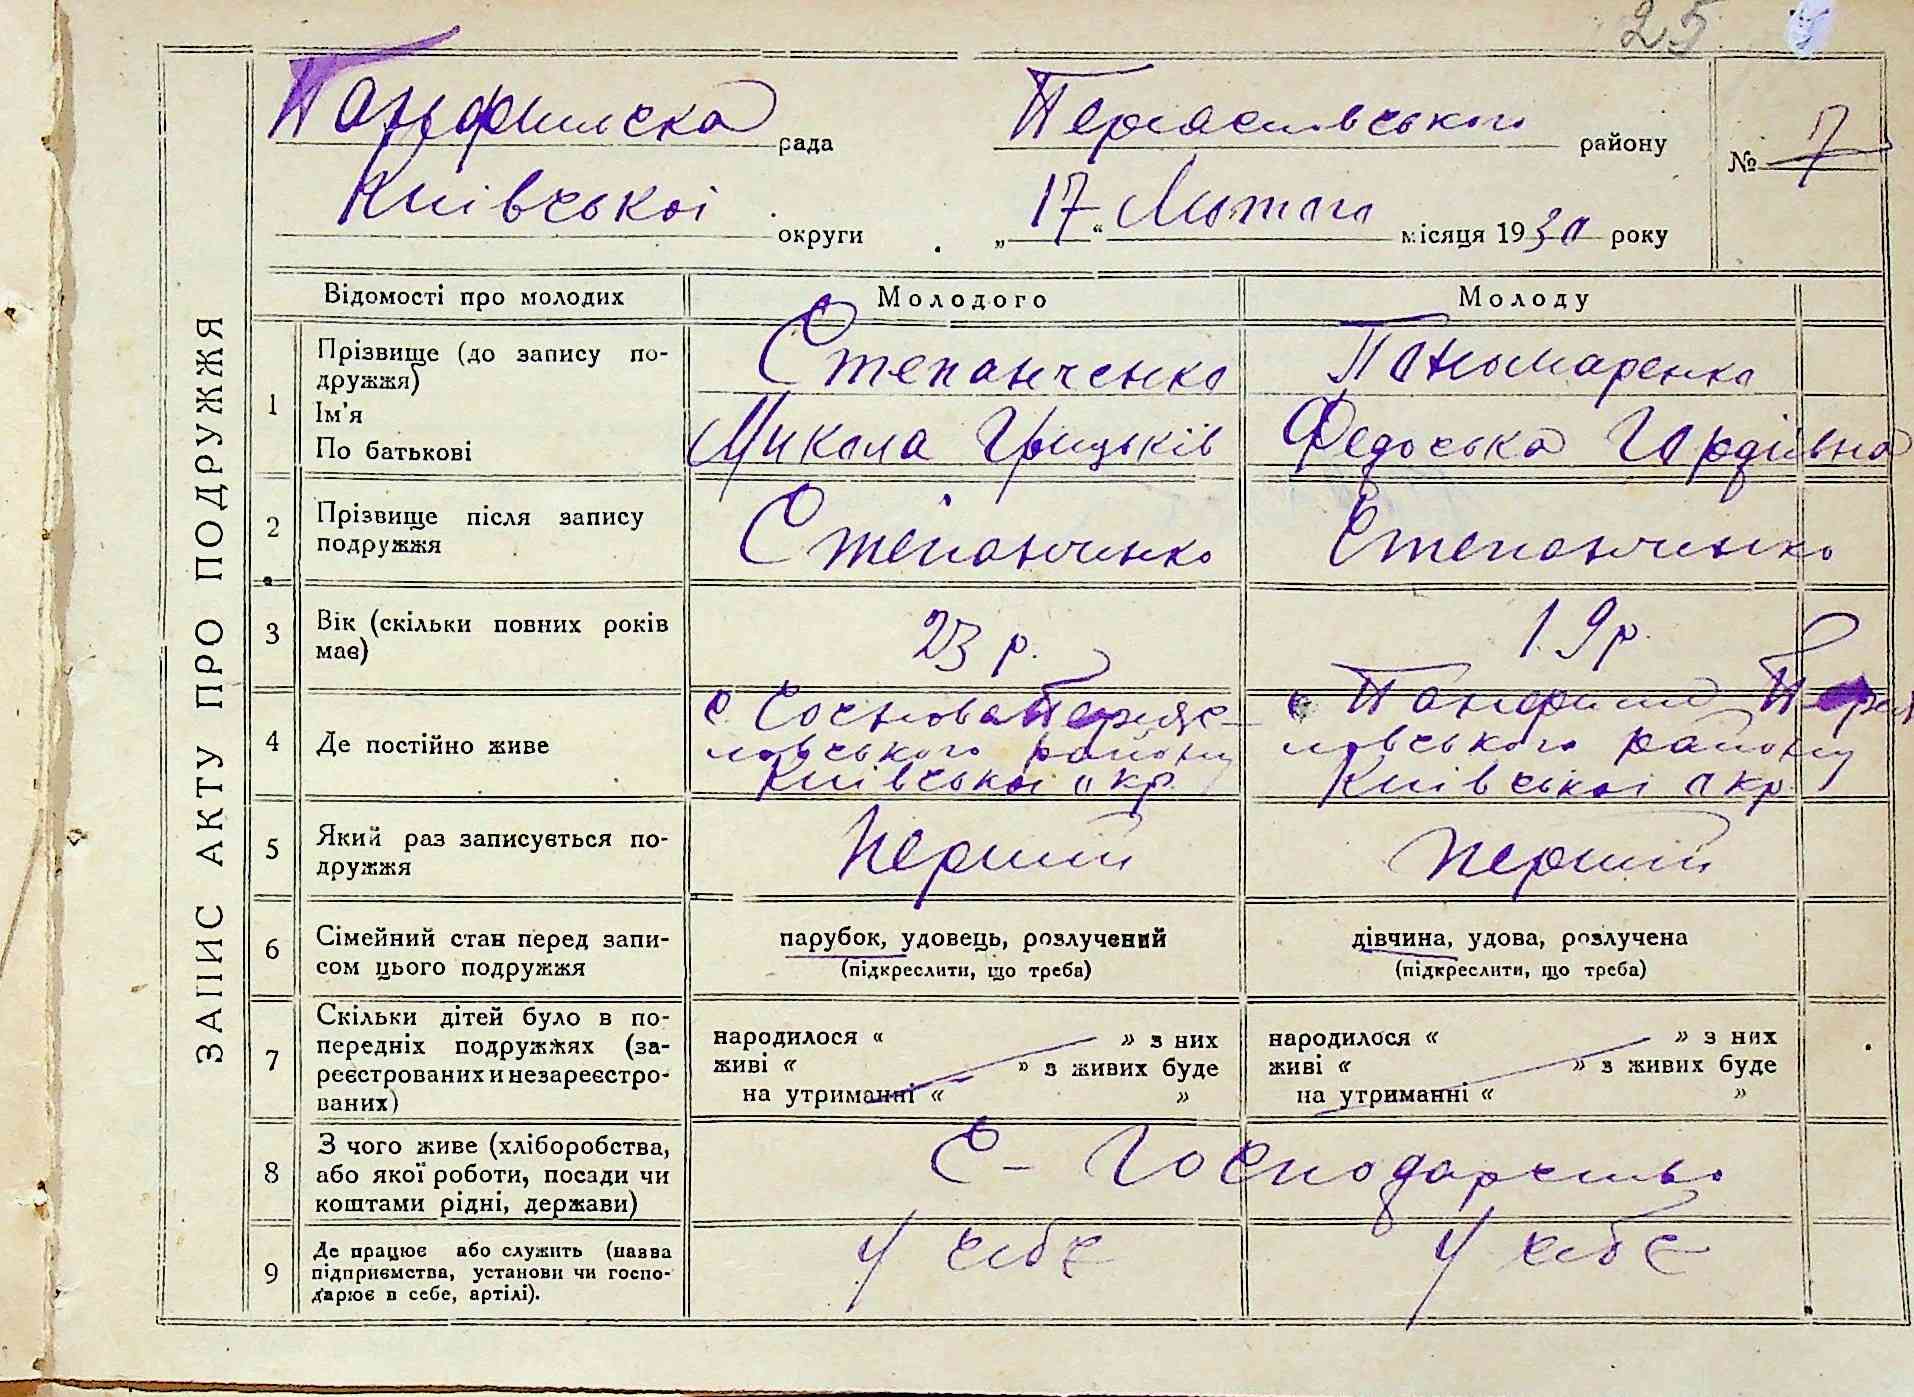 25
Панфилська рада Переяславського району № 7
Київської округи „17“ Лютого місяця 1930 року
ЗАПИС АКТУ ПРО ПОДРУЖЖЯ
Відомості про молодих Молодого Молоду
1 Прізвище (до запису по-
дружжя) Степанченко Панамаренко
Ім'я
По батькові Микола Грицьків Федоська Гордіівна
2 Прізвище після запису
подружжя Степанченко Степанченко
3 Вік (скільки повних років
має) 23 р. 19 р.
4 Де постійно живе
с. Соснова Переяс-
лавського району
Київської окр.
с Панфили Перея
лавського району
Київської окр
5 Який раз записується по-
дружжя Перший Перший
6 Сімейний стан перед запи-
сом цього подружжя
парубок, удовець, розлучений
(підкреслити, що треба)
дівчина, удова, розлучена
(підкреслити, що треба)
7 Скільки дітей було в по-
передніх подружжях (за-
реєстрованих и незареєстро-
ваних)
народилося « » з них
живі « » з живих буде
на утриманні « »
народилося « » з них
живі « » з живих буде
на утриманні « »
8 З чого живе (хліборобства,
або якої роботи, посади чи
коштами рідні, держави)
С-Господарство
9 Де працює або служить (назва
підприємства, установи чи госпо-
дарює в себе, артілі).
У себе У себе